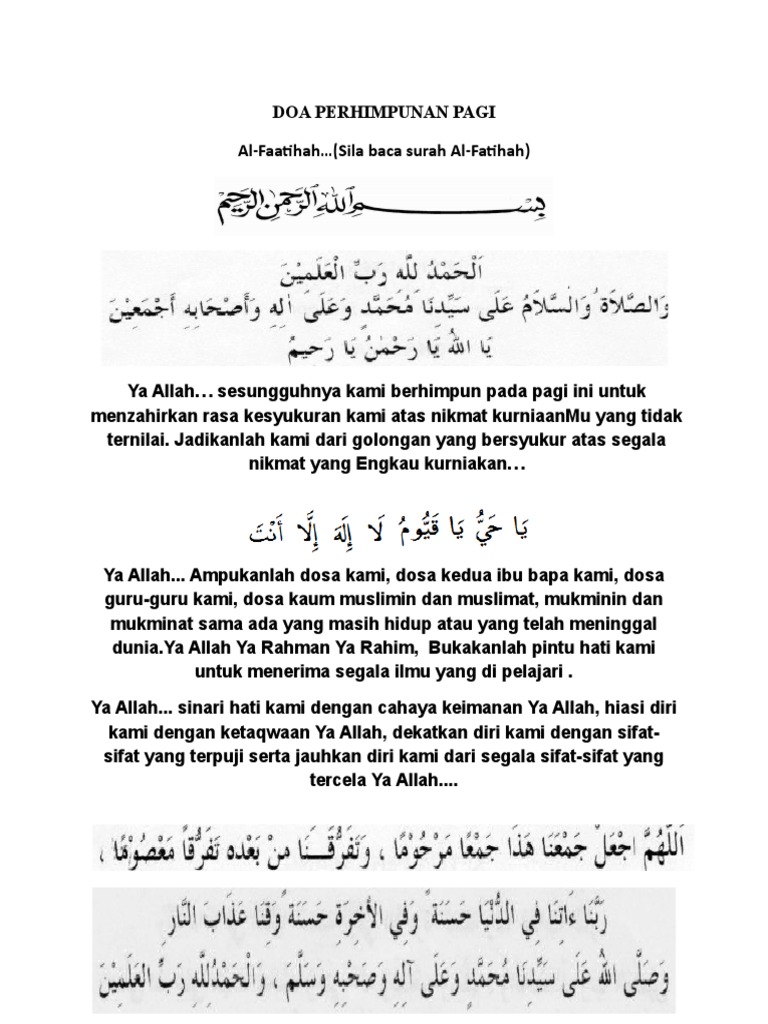 DOA PERHIMPUNAN PAGI
Al-Faatihah...(Sila baca surah Al-Fatihah)
بِسْمِ اللهِ الرَّحْمٰنِ الرَّحِيْمِ
اَلْحَمْدُ لِلَّهِ رَبِّ الْعَلَمِيْنَ
وَالصَّلاَةُ وَالسَّلاَمُ عَلَى سَيِّدِنَا مُحَمَّدٍ وَعَلَى اٰلِهِ وَأَصْحَابِهِ أَجْمَعِيْنَ
يَا اللهُ يَا رَحْمٰنُ يَا رَحِيمُ
Ya Allah… sesungguhnya kami berhimpun pada pagi ini untuk
menzahirkan rasa kesyukuran kami atas nikmat kurniaanMu yang tidak
ternilai. Jadikanlah kami dari golongan yang bersyukur atas segala
nikmat yang Engkau kurniakan…
يَا حَيُّ يَا قَيُّومُ لَا إِلَهَ إِلَّا أَنْتَ
Ya Allah... Ampukanlah dosa kami, dosa kedua ibu bapa kami, dosa
guru-guru kami, dosa kaum muslimin dan muslimat, mukminin dan
mukminat sama ada yang masih hidup atau yang telah meninggal
dunia.Ya Allah Ya Rahman Ya Rahim,  Bukakanlah pintu hati kami
untuk menerima segala ilmu yang di pelajari .
Ya Allah... sinari hati kami dengan cahaya keimanan Ya Allah, hiasi diri
kami dengan ketaqwaan Ya Allah, dekatkan diri kami dengan sifat-
sifat yang terpuji serta jauhkan diri kami dari segala sifat-sifat yang
tercela Ya Allah....
اَللَّهُمَّ اجْعَلْ جَمْعَنَا هَذَا جَمْعًا مَرْحُوْمًا ، وَتَفَرُّقَنَا مِنْ بَعْدِهِ تَفَرُّقًا مَعْصُوْمًا ،
رَبَّنَا ءَاتِنَا فِي الدُّنْيَا حَسَنَةً وَفِي الأَخِرَةِ حَسَنَةً وَقِنَا عَذَابَ النَّارِ
وَصَلَّى اللهُ عَلَى سَيِّدِنَا مُحَمَّدٍ وَعَلَى آلِهِ وَصَحْبِهِ وَسَلَّمَ ، وَالْحَمْدُلِلَّهِ رَبِّ العَلَمِيْنَ